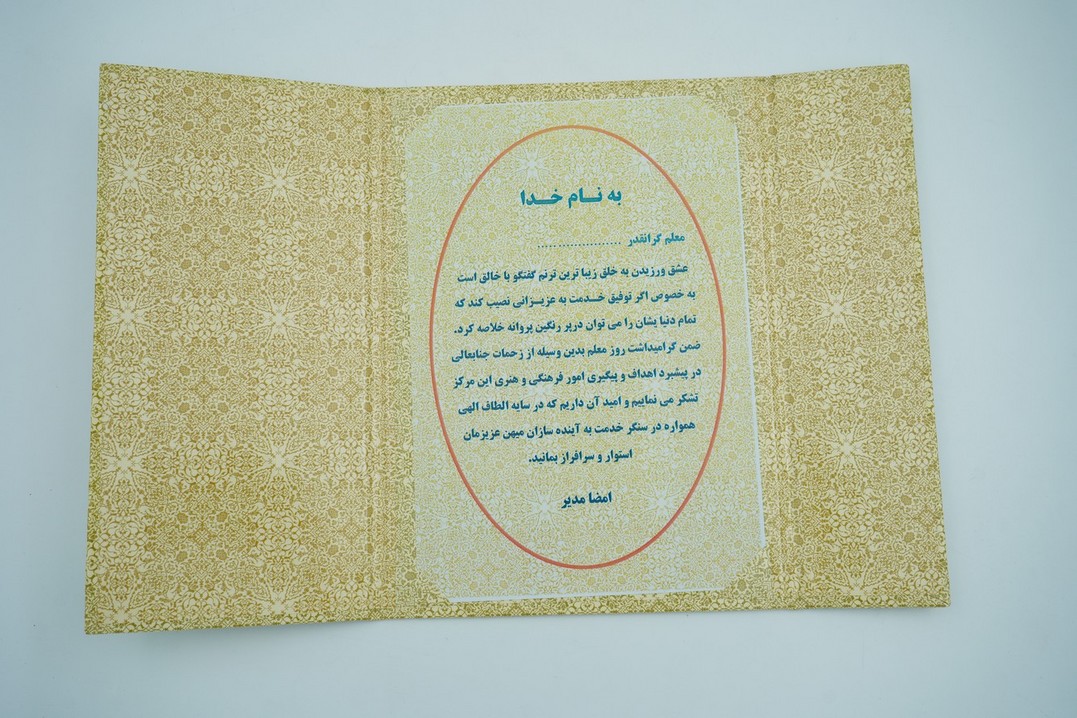 به نــام خــدا
معلم گرانقدر .....................
عشق ورزیدن به خلق زیبا ترین ترنم گفتگو با خالق است
به خصوص اگر توفیق خــدمت به عزیــزانی نصیب کند که
تمام دنیا یشان را می توان درپر رنگین پروانه خلاصه کرد.
ضمن گرامیداشت روز معلم بدین وسیله از زحمات جنابعالی
در پیشبرد اهداف و پیگیری امور فرهنگی و هنری این مرکز
تشکر می نماییم و امید آن داریم که در سایه الطاف الهی
همواره در سنگر خدمت به آینده سازان میهن عزیزمان
استوار و سرافراز بمانید.
امضا مدیر